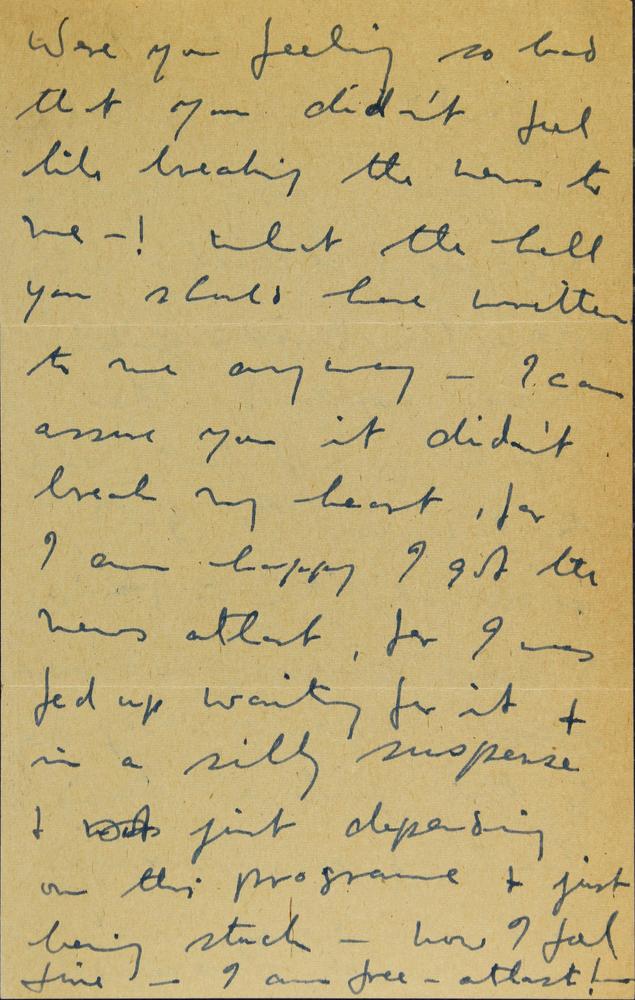 Were you feeling so bad
that you didn't feel
like breaking the news to
me -! what the hell
you should have written
to me anyway - I can
assure you it didn't
break my heart, for
I am happy I got the
news atlast, for I was
fed up waiting for it +
in a silly suspense
+ just depending
on this programe + just
being stuck - now I feel
fine - I am free - atlast!-